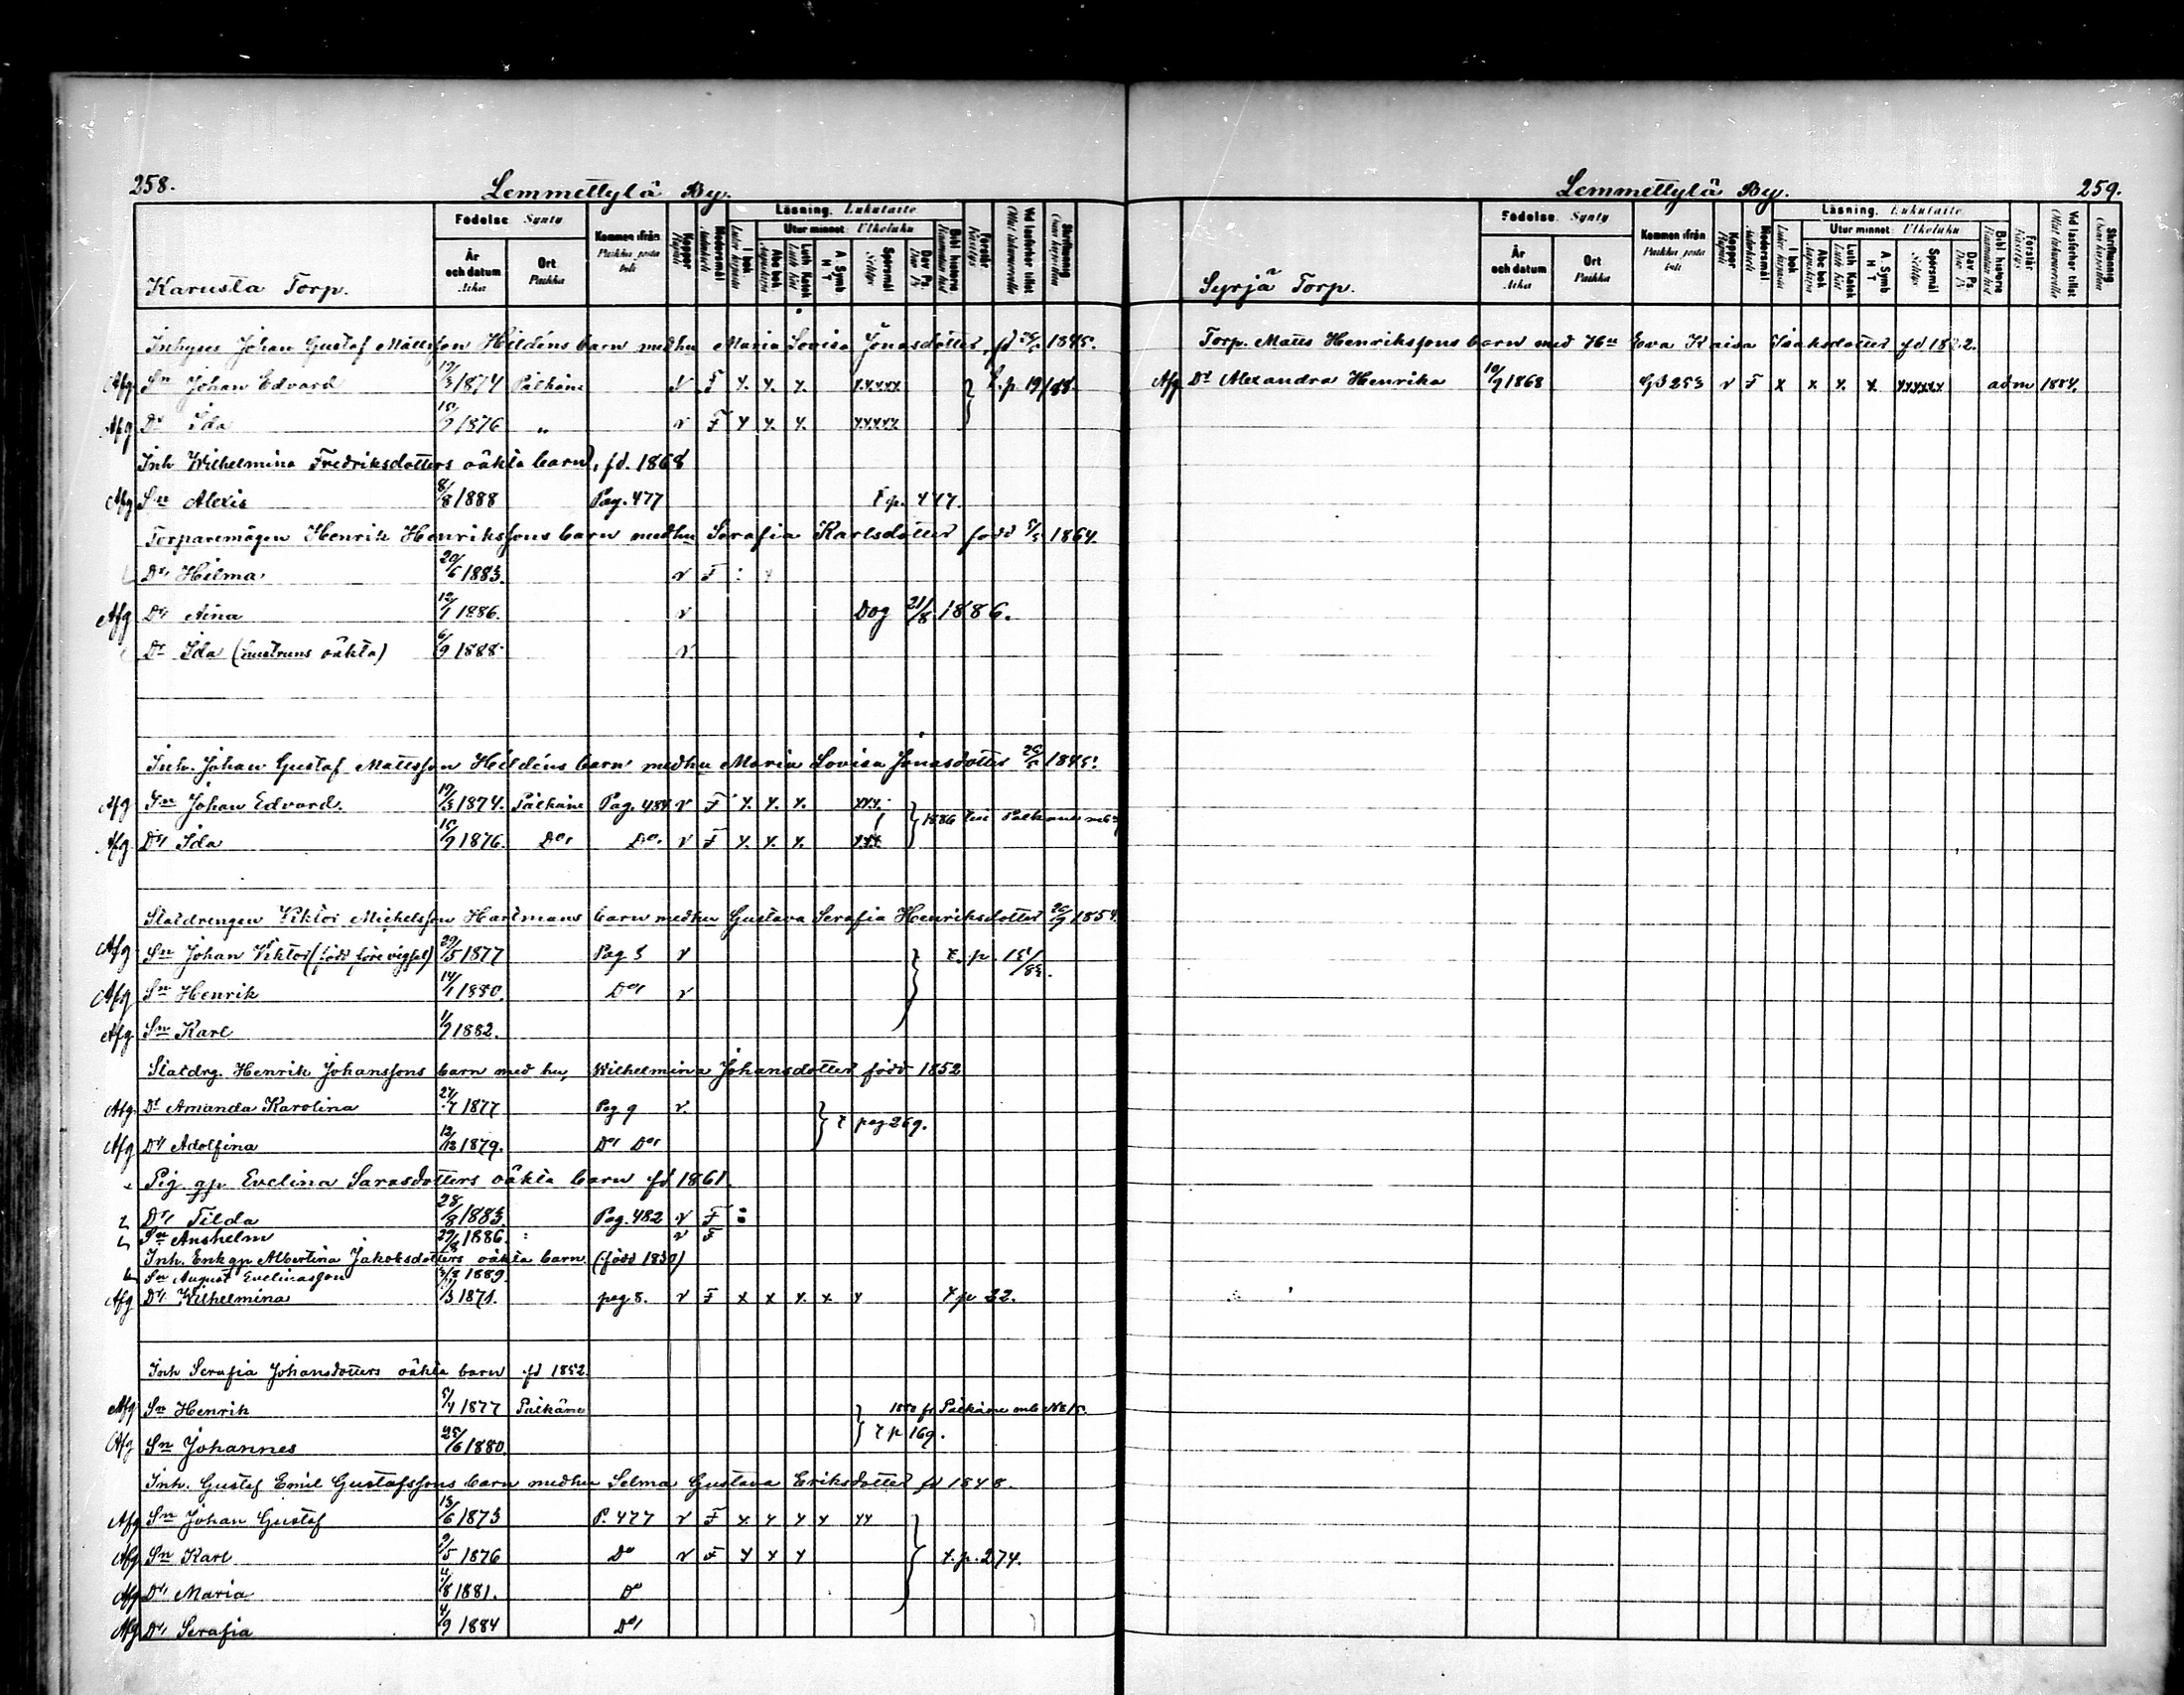 258.
Lemmettylä By.
Karusta Torp.
Födelse Syntu
År och datum Aika
Ort Paikka
Kommen ifrån Paikka josta tuli
Koppor
Modersmål
Läsning. Lukutaito
I bok
Utur minnet: Ulkoluku
Abc bok
Luth. Katek
A. Symb. H T
Spörsmål
Dav. Ps
Bibl. historie
Förstår
Vid läsförhör tillst
Skriftkunnig
Inhyses Johan Gustaf Mattsson Hildéns barn med hu Maria Lovisa Jonasdotter, fd 1845.
Afg Sn Johan Edvard 19/3 1874 Pälkäne v F x. x. x. xxxxx } t.p. 19/88.
Afg Dr Ida 15/9 1876 „ v F x x. x. xxxxx
Inh Wilhelmina Fredriksdotters oäkta barn, fd. 1868
Afg Sn Alexis 8/8 1888 Pag. 477 t p. 477.
Torparemågen Henrik Henrikssons barn med hu Serafia Karlsdotter född 1864.
Dr Hilma 20/6 1883. v F :
Afg Dr Aina 12/1 1886. v Dog 21/8 1886.
Dr Ida (hustruns oäkta) 6/9 1888. v
Inh. Johan Gustaf Mattsson Hildéns barn med hu Maria Lovisa Jonasdotter 1845.
Afg Sn Johan Edvard. 19/3 1874. Pälkäne Pag. 484 v F x. x. x. xxx. } 1886 fr Pälkäne mb
Afg. Dr Ida 15/9 1876. Do Do. v F x. x. x. xxx
Statdrengen Viktor Michelsson Hartmans barn med hu Gustava Serafia Henriksdotter 26/9 1854.
Afg Sn Johan Viktor (född före vigsel) 29/5 1877 Pag 5 v } t. p.
Afg Sn Henrik 14/1 1880. Do v
Afg. Sn Karl 1/9 1882.
Statdrg. Henrik Johanssons barn med hu, Wilhelmina Johansdotter född 1852
Afg. Dr Amanda Karolina 27/7 1877 Pag 9 v. } t pag 269.
Afg Dr Adolfina 12/12 1879. Do Do
Pig. gp Evelina Sarasdotters oäkta barn fd 1861.
Dr Tilda 28/8 1883. Pag. 482 v F :
Sn Anshelm 29/8 1886. v F
Inh. Enk gp Albertina Jakobsdotters oäkta barn (född 1830)
Sn August Evelinasson 1889.
Afg Dr Wilhelmina 1/3 1871. pag 8. v F x x x. x x t p 22.
Inh Serafia Johansdotters oäkta barn fd 1852.
Afg Sn Henrik 5/4 1877 Pälkäne } 1880 fr Pälkäne mb
Afg Sn Johannes 25/6 1880. t p 169.
Inh. Gustaf Emil Gustafssons barn med hu Selma Gustava Eriksdotter fd 1848.
Afg Sn Johan Gustaf 13/6 1873 P. 477 v F x x x x xx } t. p. 274.
Afg Sn Karl 2/5 1876 Do v F x x x
Afg Dr Maria 1881. Do
Afg Dr Serafia 4/9 1884 Do
Lemmettylä By.
259.
Syrjä Torp.
Födelse. Syntu
År och datum Aika
Ort Paikka
Kommen ifrån Paikka josta tuli
Koppor
Modersmål
Läsning. Lukutaito
I bok
Utur minnet: Ulkoluku
Abc bok
Luth. Katek
A. Symb H T
Spörsmål
Dav. Ps
Bibl. historie
Förstår
Vid läsförhör tillst
Skriftkunnig
Torp. Matts Henrikssons barn med Hu Eva Kaisa Isaksdotter fd
Afg Dr Alexandra Henrika 10/9 1868 253 v F x x x. x. xxxxxx adm 1884.